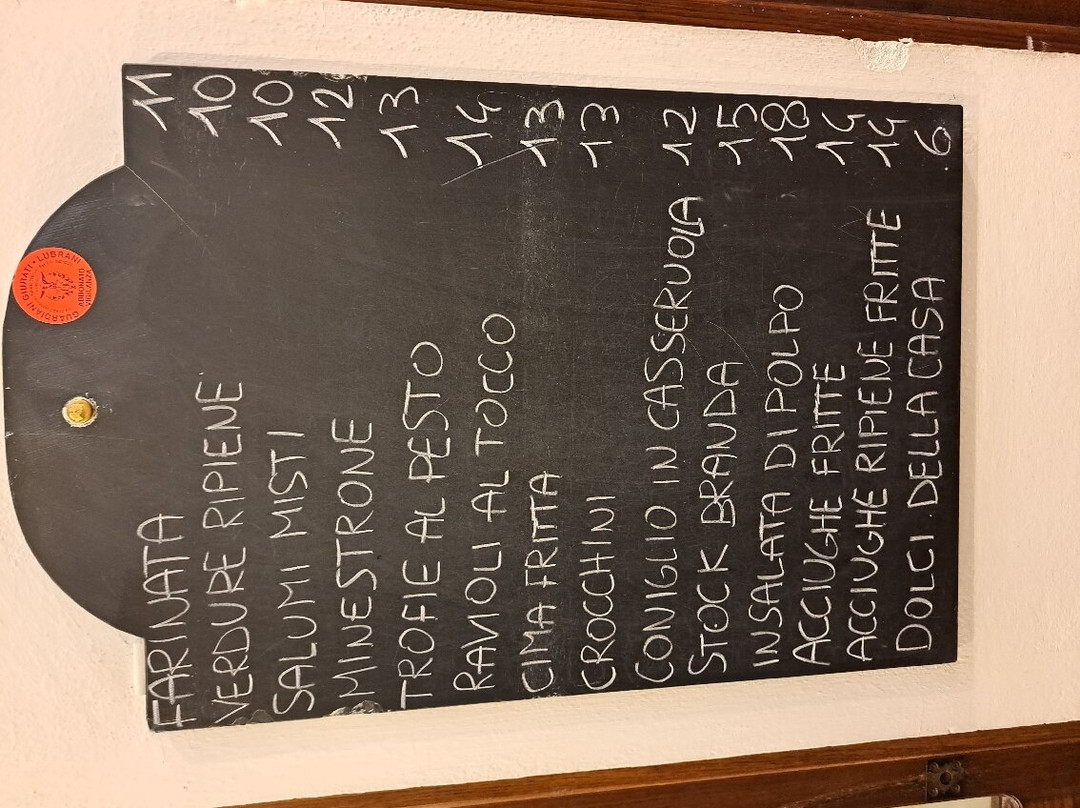 GUARDIANI GIURATI • LUBRANI
ABBONATO
VIGILANZA
FARINATA 11
VERDURE RIPIENE 10
SALUMI MISTI 10
MINESTRONE 12
TROFIE AL PESTO 13
RAVIOLI AL TOCCO 14
CIMA FRITTA 13
CROCCHINI 13
CONIGLIO IN CASSERUOLA 12
STOCK BRANDA 15
INSALATA DI POLPO 18
ACCIUGHE FRITTE 14
ACCIUGHE RIPIENE FRITTE 14
DOLCI DELLA CASA 6